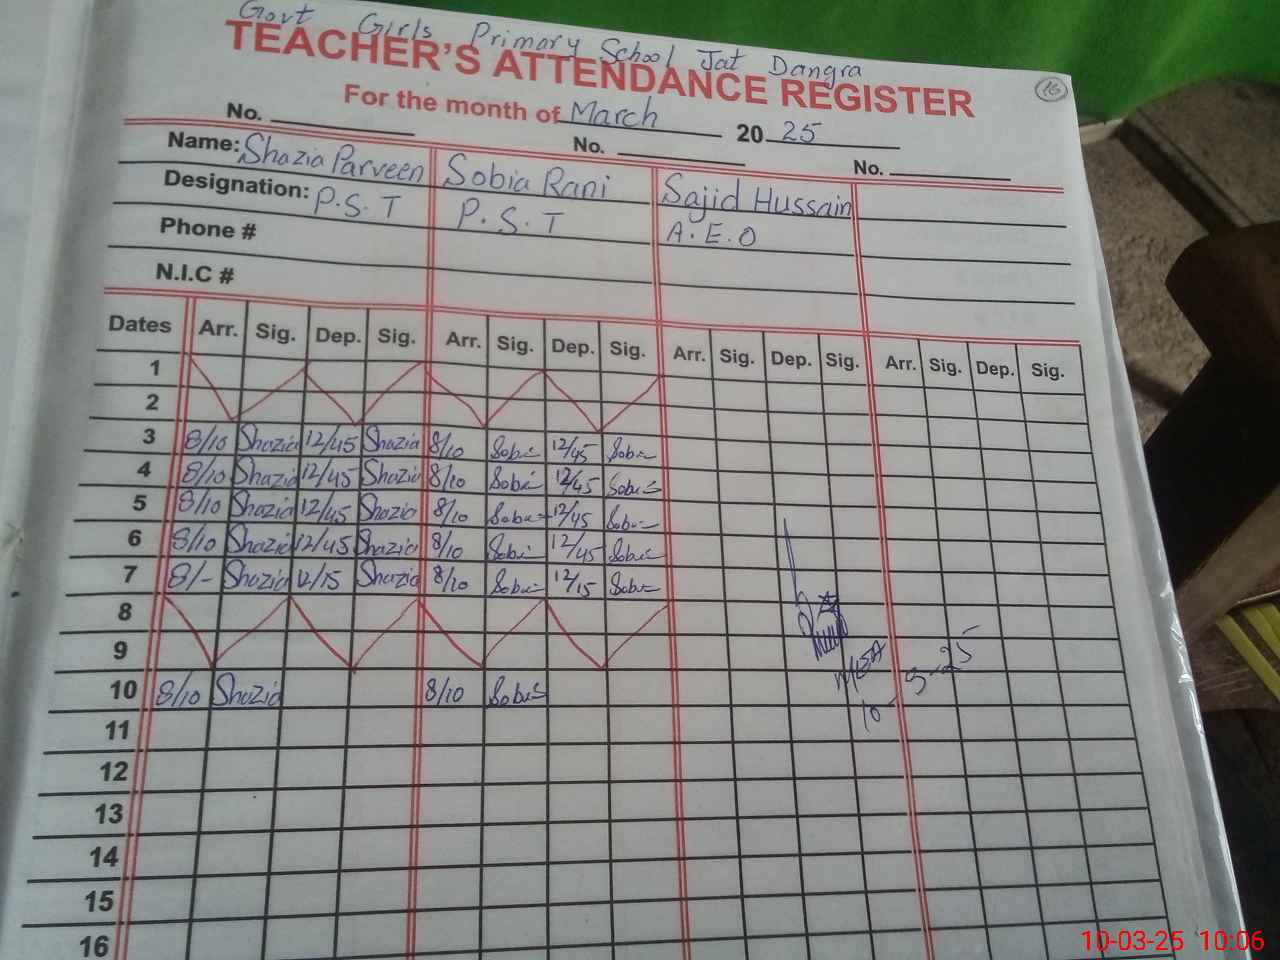 Govt Girls Primary School Jat Dangra
TEACHER'S ATTENDANCE REGISTER
16
For the month of March 20 25
No. No. No.
Name: Shazia Parveen Sobia Rani Sajid Hussain
Designation: P.S.T P.S.T A.E.O
Phone #
N.I.C #
Dates Arr. Sig. Dep. Sig. Arr. Sig. Dep. Sig. Arr. Sig. Dep. Sig. Arr. Sig. Dep. Sig.
1
2
3 8/10 Shazia 12/45 Shazia 8/10 Sobia 12/45 Sobia
4 8/10 Shazia 12/45 Shazia 8/10 Sobia 12/45 Sobia
5 8/10 Shazia 12/45 Shazia 8/10 Sobia 12/45 Sobia
6 8/10 Shazia 12/45 Shazia 8/10 Sobia 12/45 Sobia
7 8/- Shazia 12/15 Shazia 8/10 Sobia 12/15 Sobia
8
9
MEA
10-3-25
10 8/10 Shazia 8/10 Sobia
11
12
13
14
15
16
10-03-25 10:06